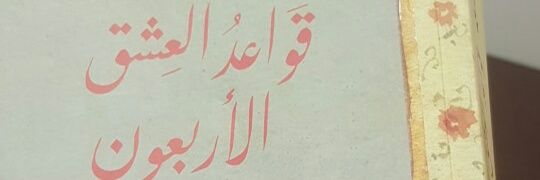 قَوَاعدُ العِشق
الأربعون